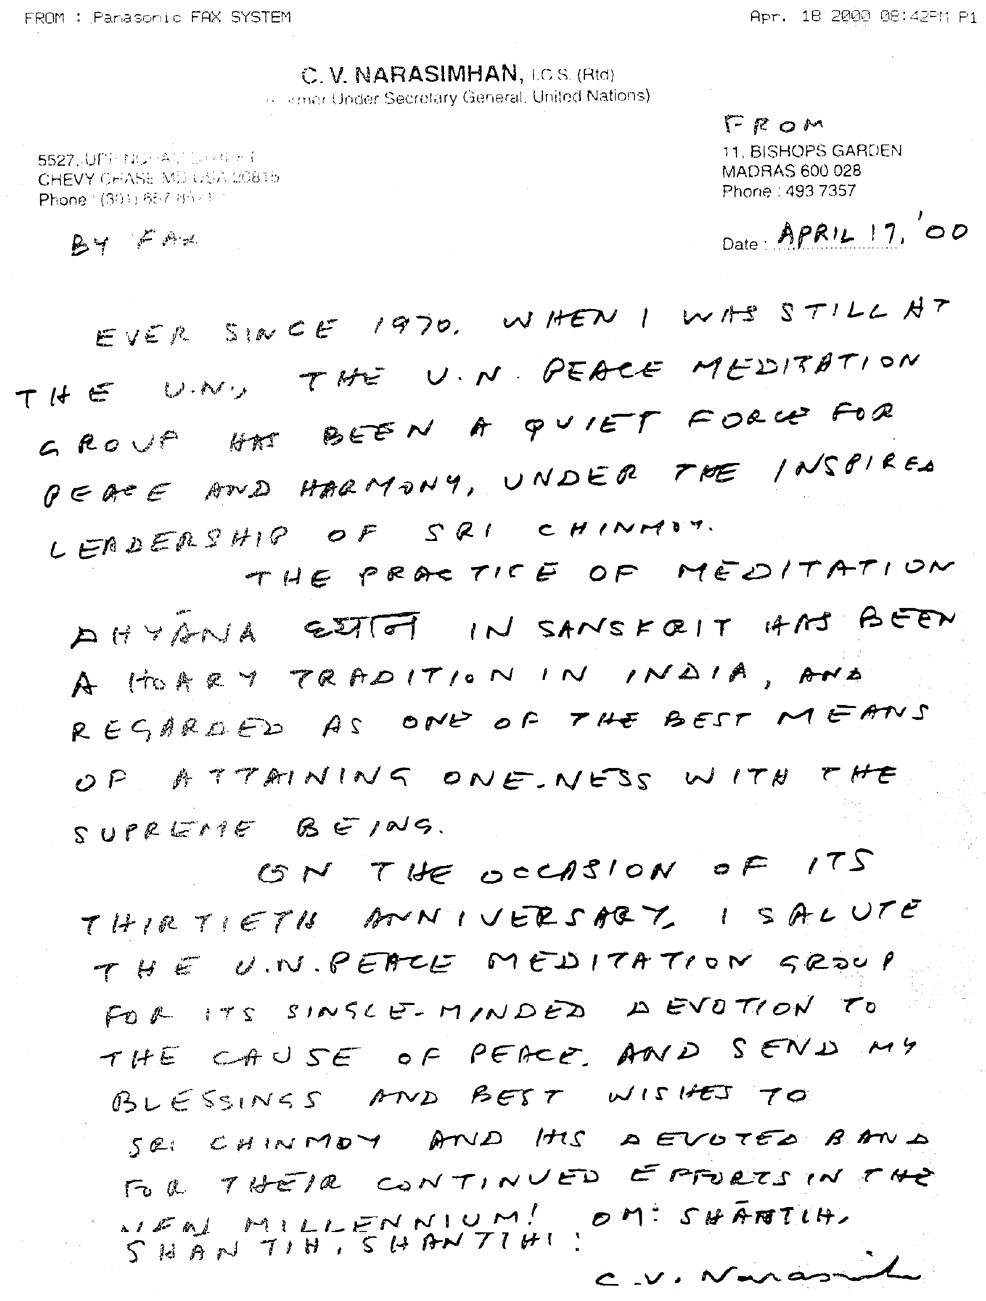 FROM : Panasonic FAX SYSTEM
Apr. 18 2000 08:42PM P1
C. V. NARASIMHAN, I.C.S. (Rtd)
Under Secretary General, United Nations)
FROM
5527,
11, BISHOPS GARDEN
CHEVY CHASE MD USA 20815
MADRAS 600 028
Phone : (301)
Phone : 493 7357
BY FAX
Date : APRIL 17, '00
EVER SINCE 1970. WHEN I WAS STILL AT
THE U.N., THE U.N. PEACE MEDITATION
GROUP HAS BEEN A QUIET FORCE FOR
PEACE AND HARMONY, UNDER THE INSPIRED
LEADERSHIP OF SRI CHINMOY.
THE PRACTICE OF MEDITATION
DHYĀNA ध्यान IN SANSKRIT HAS BEEN
A HOARY TRADITION IN INDIA, AND
REGARDED AS ONE OF THE BEST MEANS
OF ATTAINING ONE-NESS WITH THE
SUPREME BEING.
ON THE OCCASION OF ITS
THIRTIETH ANNIVERSARY, I SALUTE
THE U.N. PEACE MEDITATION GROUP
FOR ITS SINGLE-MINDED DEVOTION TO
THE CAUSE OF PEACE. AND SEND MY
BLESSINGS AND BEST WISHES TO
SRI CHINMOY AND HIS DEVOTED BAND
FOR THEIR CONTINUED EFFORTS IN THE
NEW MILLENNIUM! OM: SHĀNTIH,
SHANTIH, SHANTIHI:
C. V. Narasimhan